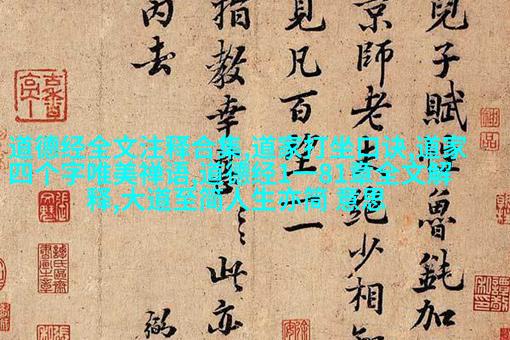 兒子賦性魯鈍加
京師老絕少相
見凡百望一一
指教幸
此亦
丙去
道德经全文注释合集,道家打坐口诀,道家
四个字唯美禅语,道德经1一81章全文解
释,大道至简人生亦简 意思